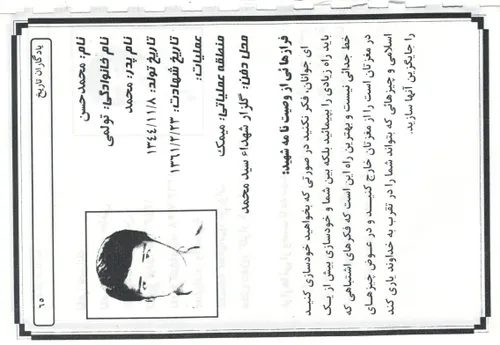 یادگاران تاریخ
نام: محمدحسن
نام خانوادگی: تولمی
نام پدر: محمد
تاریخ تولد: ۱۳۴۴/۱۱/۸
تاریخ شهادت: ۱۳۶۱/۲/۲۳
عملیات:
منطقه عملیاتی: میمک
محل دفن: گلزار شهداء سید محمد
فرازهائی از وصیت نامه شهید:
ای جوانان، فکر نکنید در صورتی که بخواهید خودسازی کنید
باید راه زیادی را بپیمائید بلکه بین شما و خودسازی بیش از یک
خط جدائی نیست و بهترین راه این است که فکرهای اشتباهی که
در مغزتان است را از مغزتان خارج کنید و در عوض چیزهای
اسلامی و چیزهائی که بتواند شما را در تقرب به خداوند یاری کند
را جایگزین آنها سازید.
۶۵